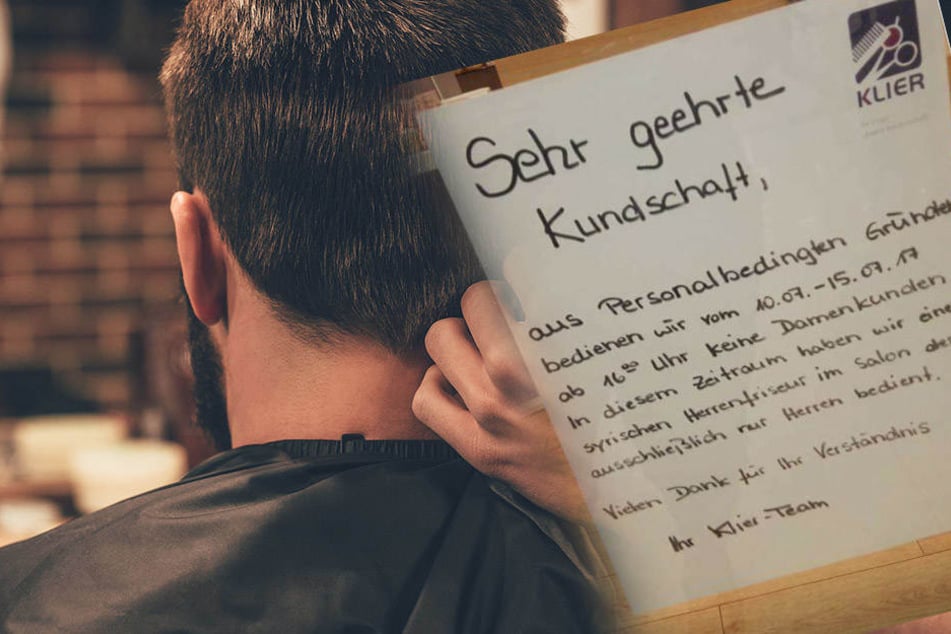 KLIER
Sehr geehrte
Kundschaft,
aus Personalbedingten Gründen
bedienen wir vom 10.07.-15.07.17
ab 16⁰⁰ Uhr keine Damenkunden
In diesem Zeitraum haben wir
syrischen Herrenfriseur im Salon der
ausschließlich nur Herren bedient.
Vielen Dank für Ihr Verständnis
Ihr Klier-Team